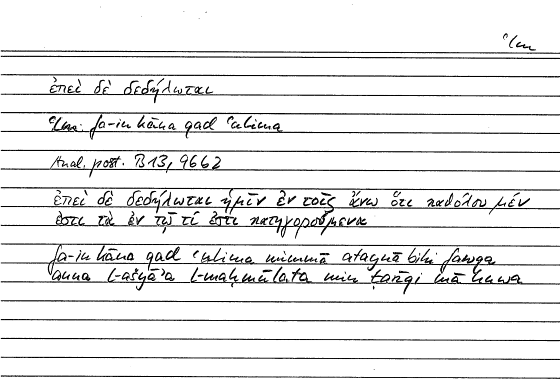 ʿlm
ἐπεὶ δὲ δεδήλωται
ʿlm: fa-in kāna qad ʿulima
Anal. post. B13, 96b2
ἐπεὶ δὲ δεδήλωται ἡμῖν ἐν τοῖς ἄνω ὅτι καθόλου μέν
ἐστι τὰ ἐν τῷ τί ἐστι κατηγορούμενα
fa-in kāna qad ʿulima mimmā ataynā bihī fawqa
anna l-ašyāʾa l-maḥmūlata min ṭarīqi mā huwa